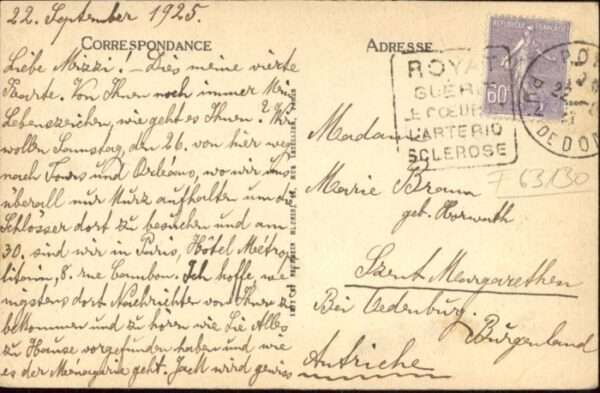 22. September 1925.
CORRESPONDANCE
Liebe Mizzi! – Dies meine vierte
Karte. Von Ihnen noch immer kein
Lebenszeichen, wie geht es Ihnen? Wir
wollen Samstag, den 26. von hier weg
nach Tours und Orléans, wo wir uns
überall nur kurz aufhalten um die
Schlösser dort zu besuchen und am
30. sind wir in Paris, Hôtel Métro-
politain, 8. rue Cambon. Ich hoffe, we-
nigstens dort Nachrichten von Ihnen zu
bekommen und zu hören wie Sie Alles
zu Hause vorgefunden haben und wie
es der Menagerie geht. Jack wird gewiss
ADRESSE
ROYAT
GUERIT
LE COEUR
L'ARTERIO
SCLEROSE
60
PUY DE DOME
F 63130
Madame
Marie Braun
geb. Horwath
Szent Margarethen
Bei Oedenburg.
Burgenland
Autriche